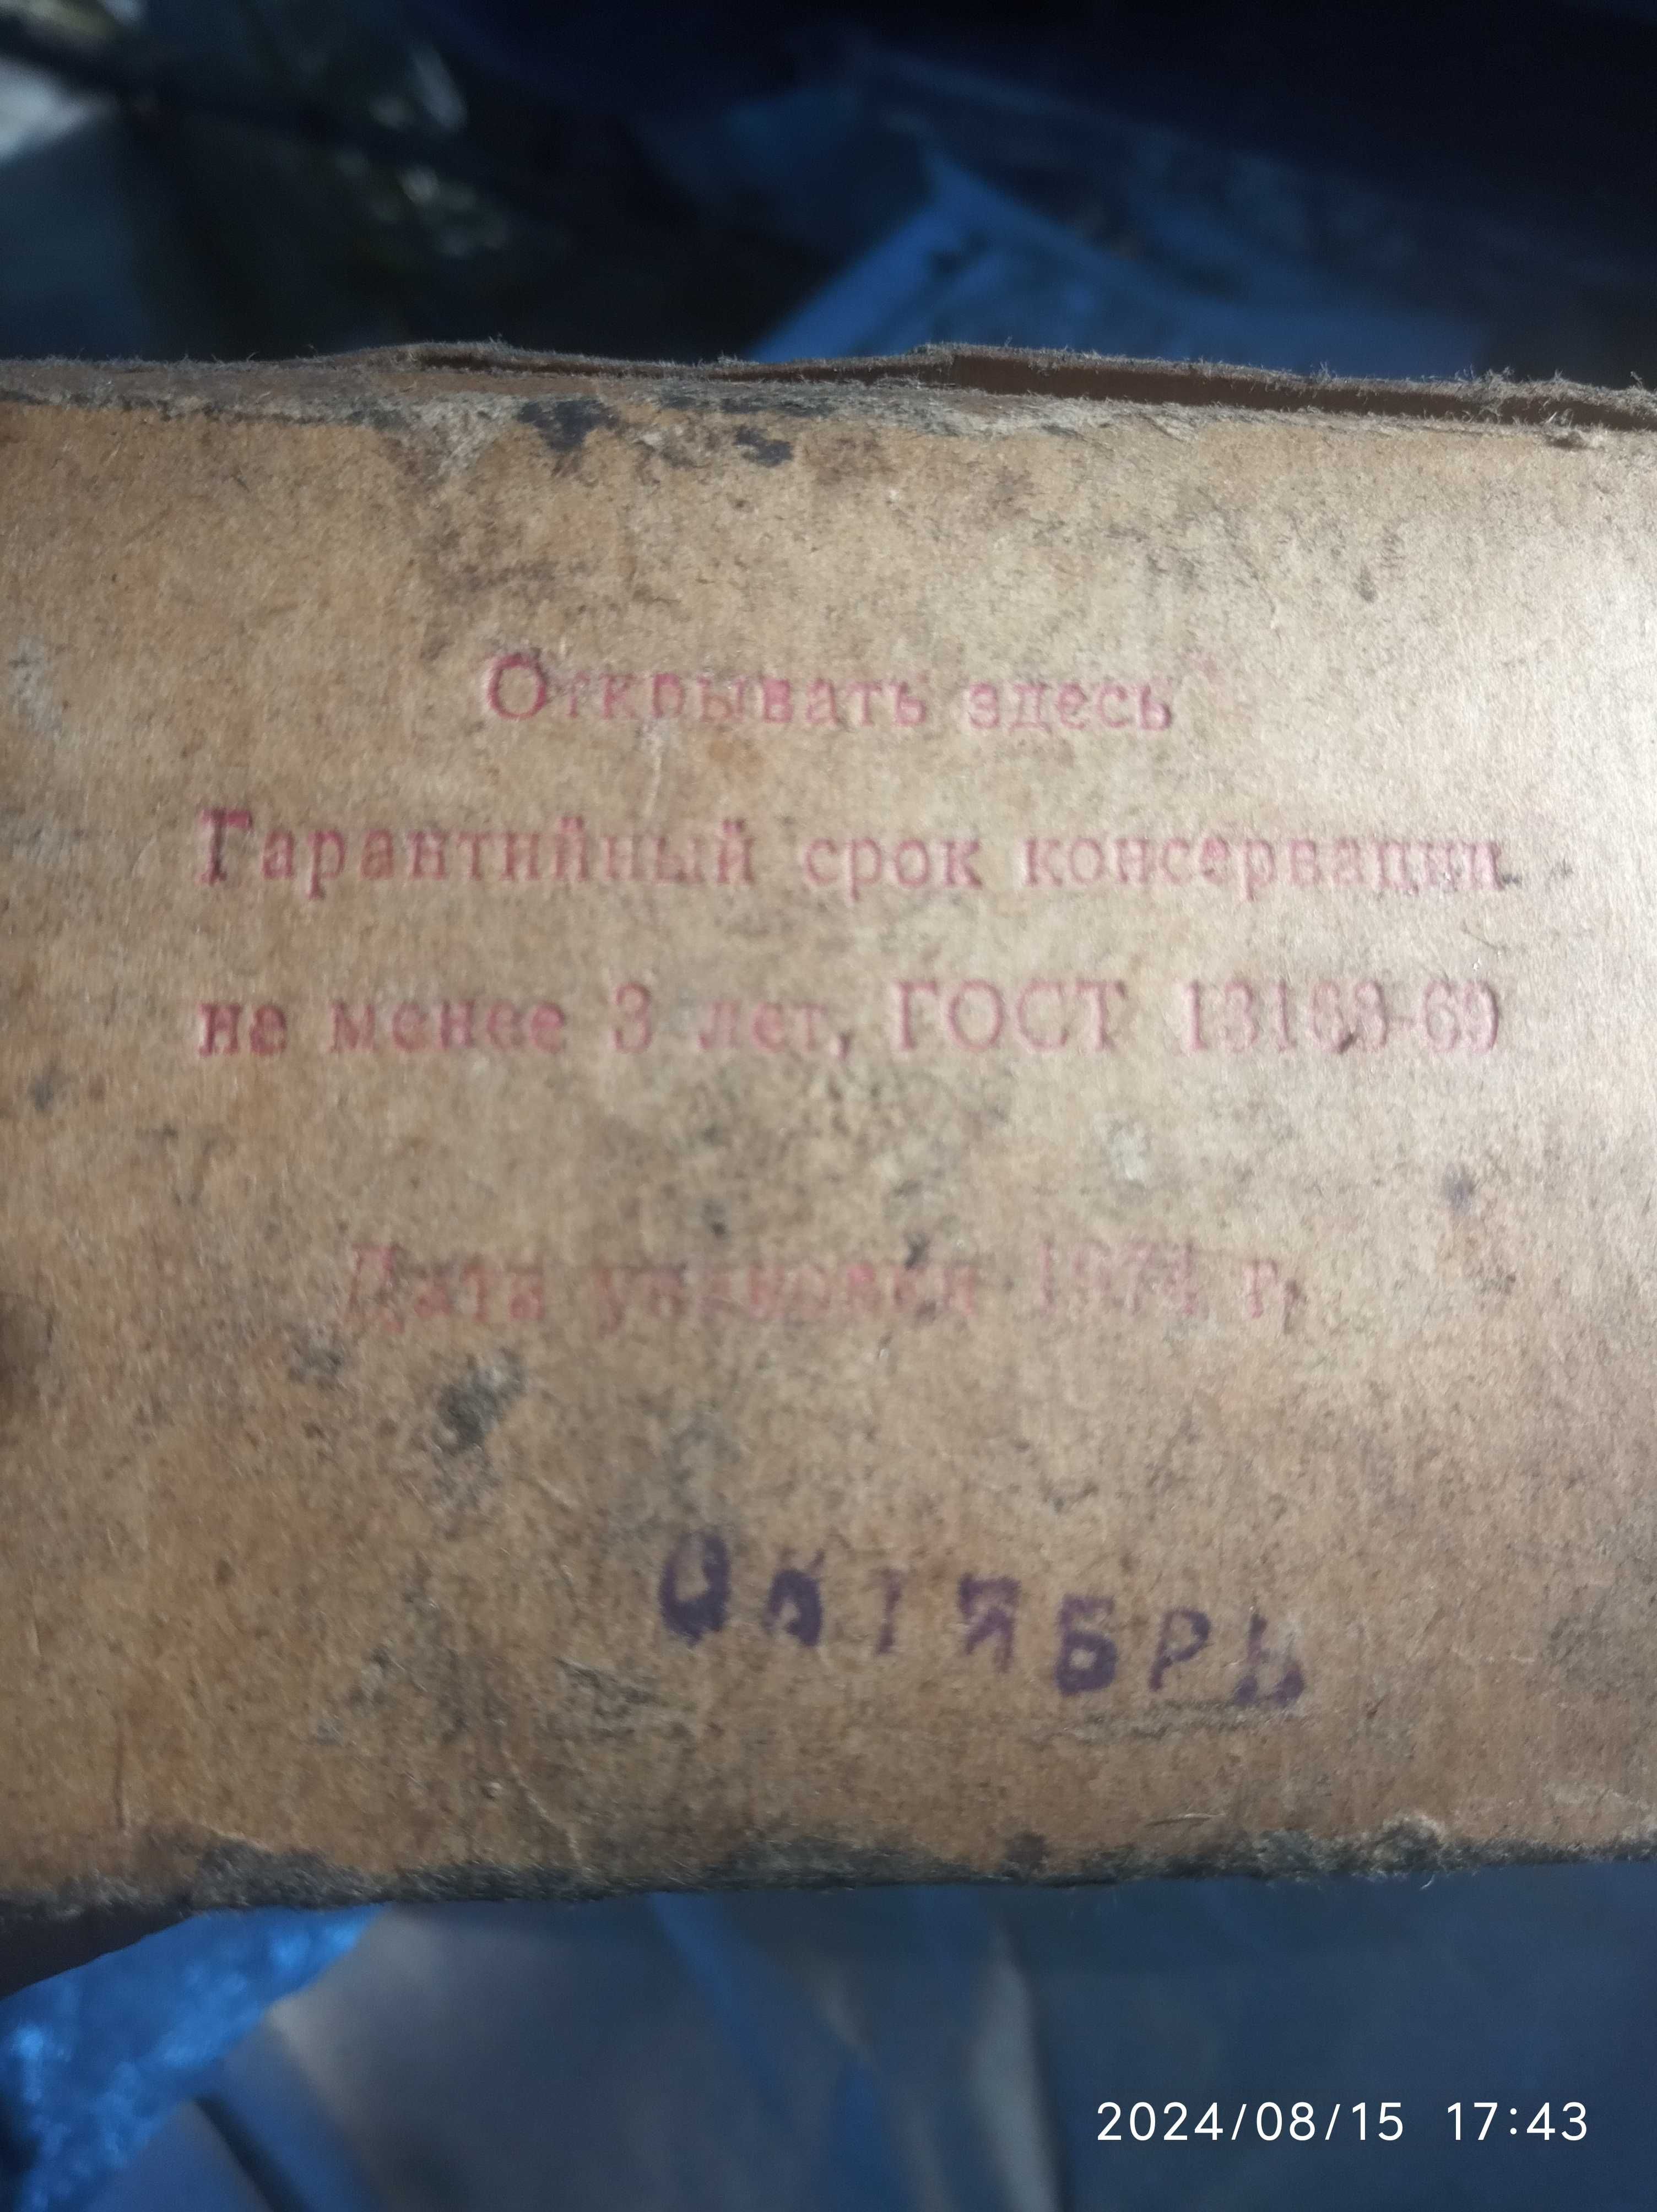 Открывать здесь
Гарантийный срок консервации
не менее 3 лет, ГОСТ 13168-69
Дата упаковки 1974 г.
ОКТЯБРЬ
2024/08/15 17:43